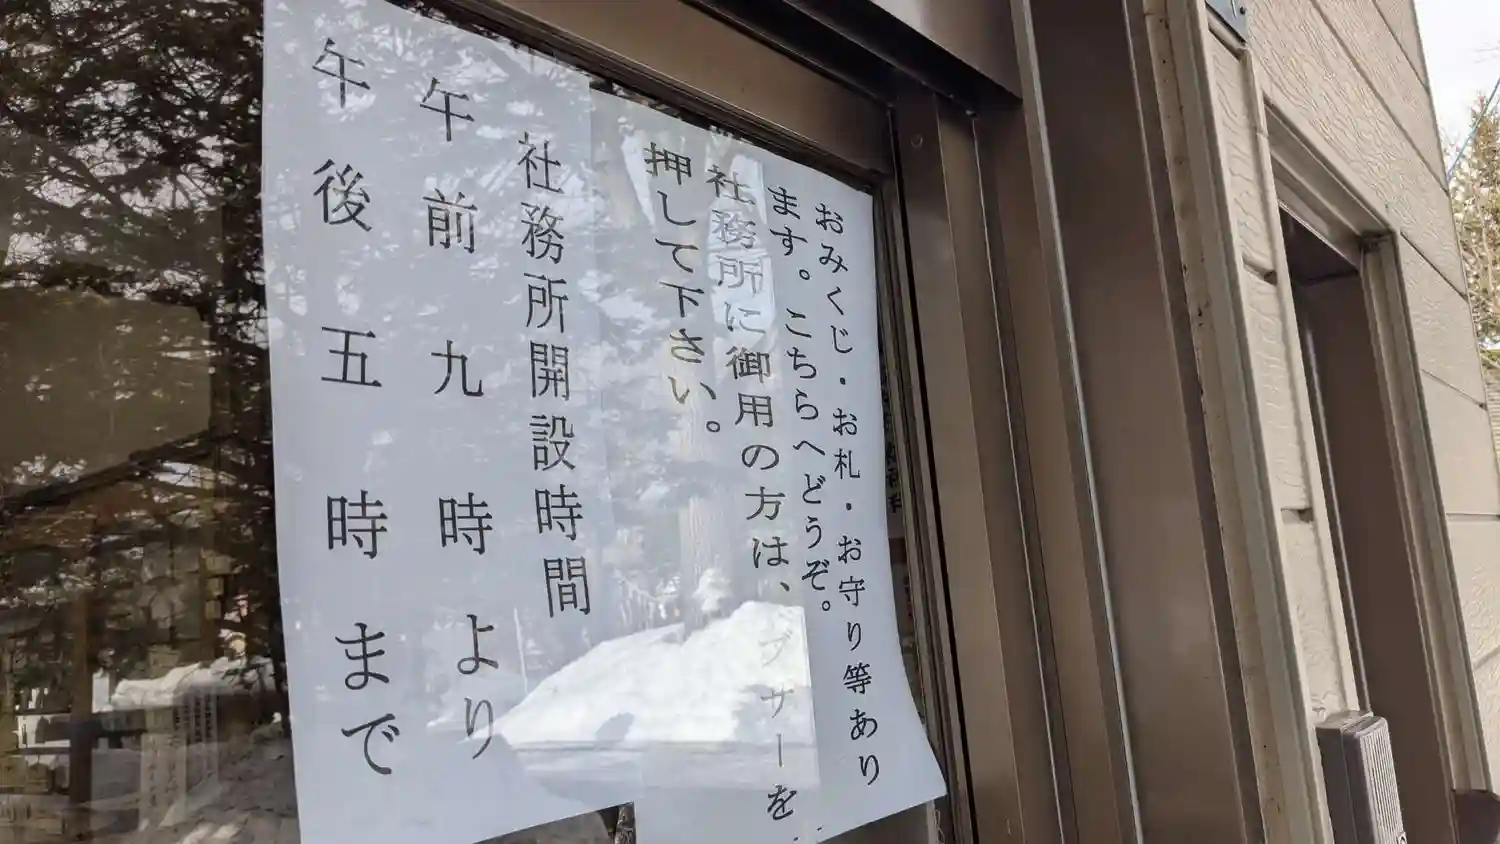 おみくじ・お札・お守り等あり
ます。こちらへどうぞ。
社務所に御用の方は、ブザーを
押して下さい。
社務所開設時間
午前九時より
午後五時まで